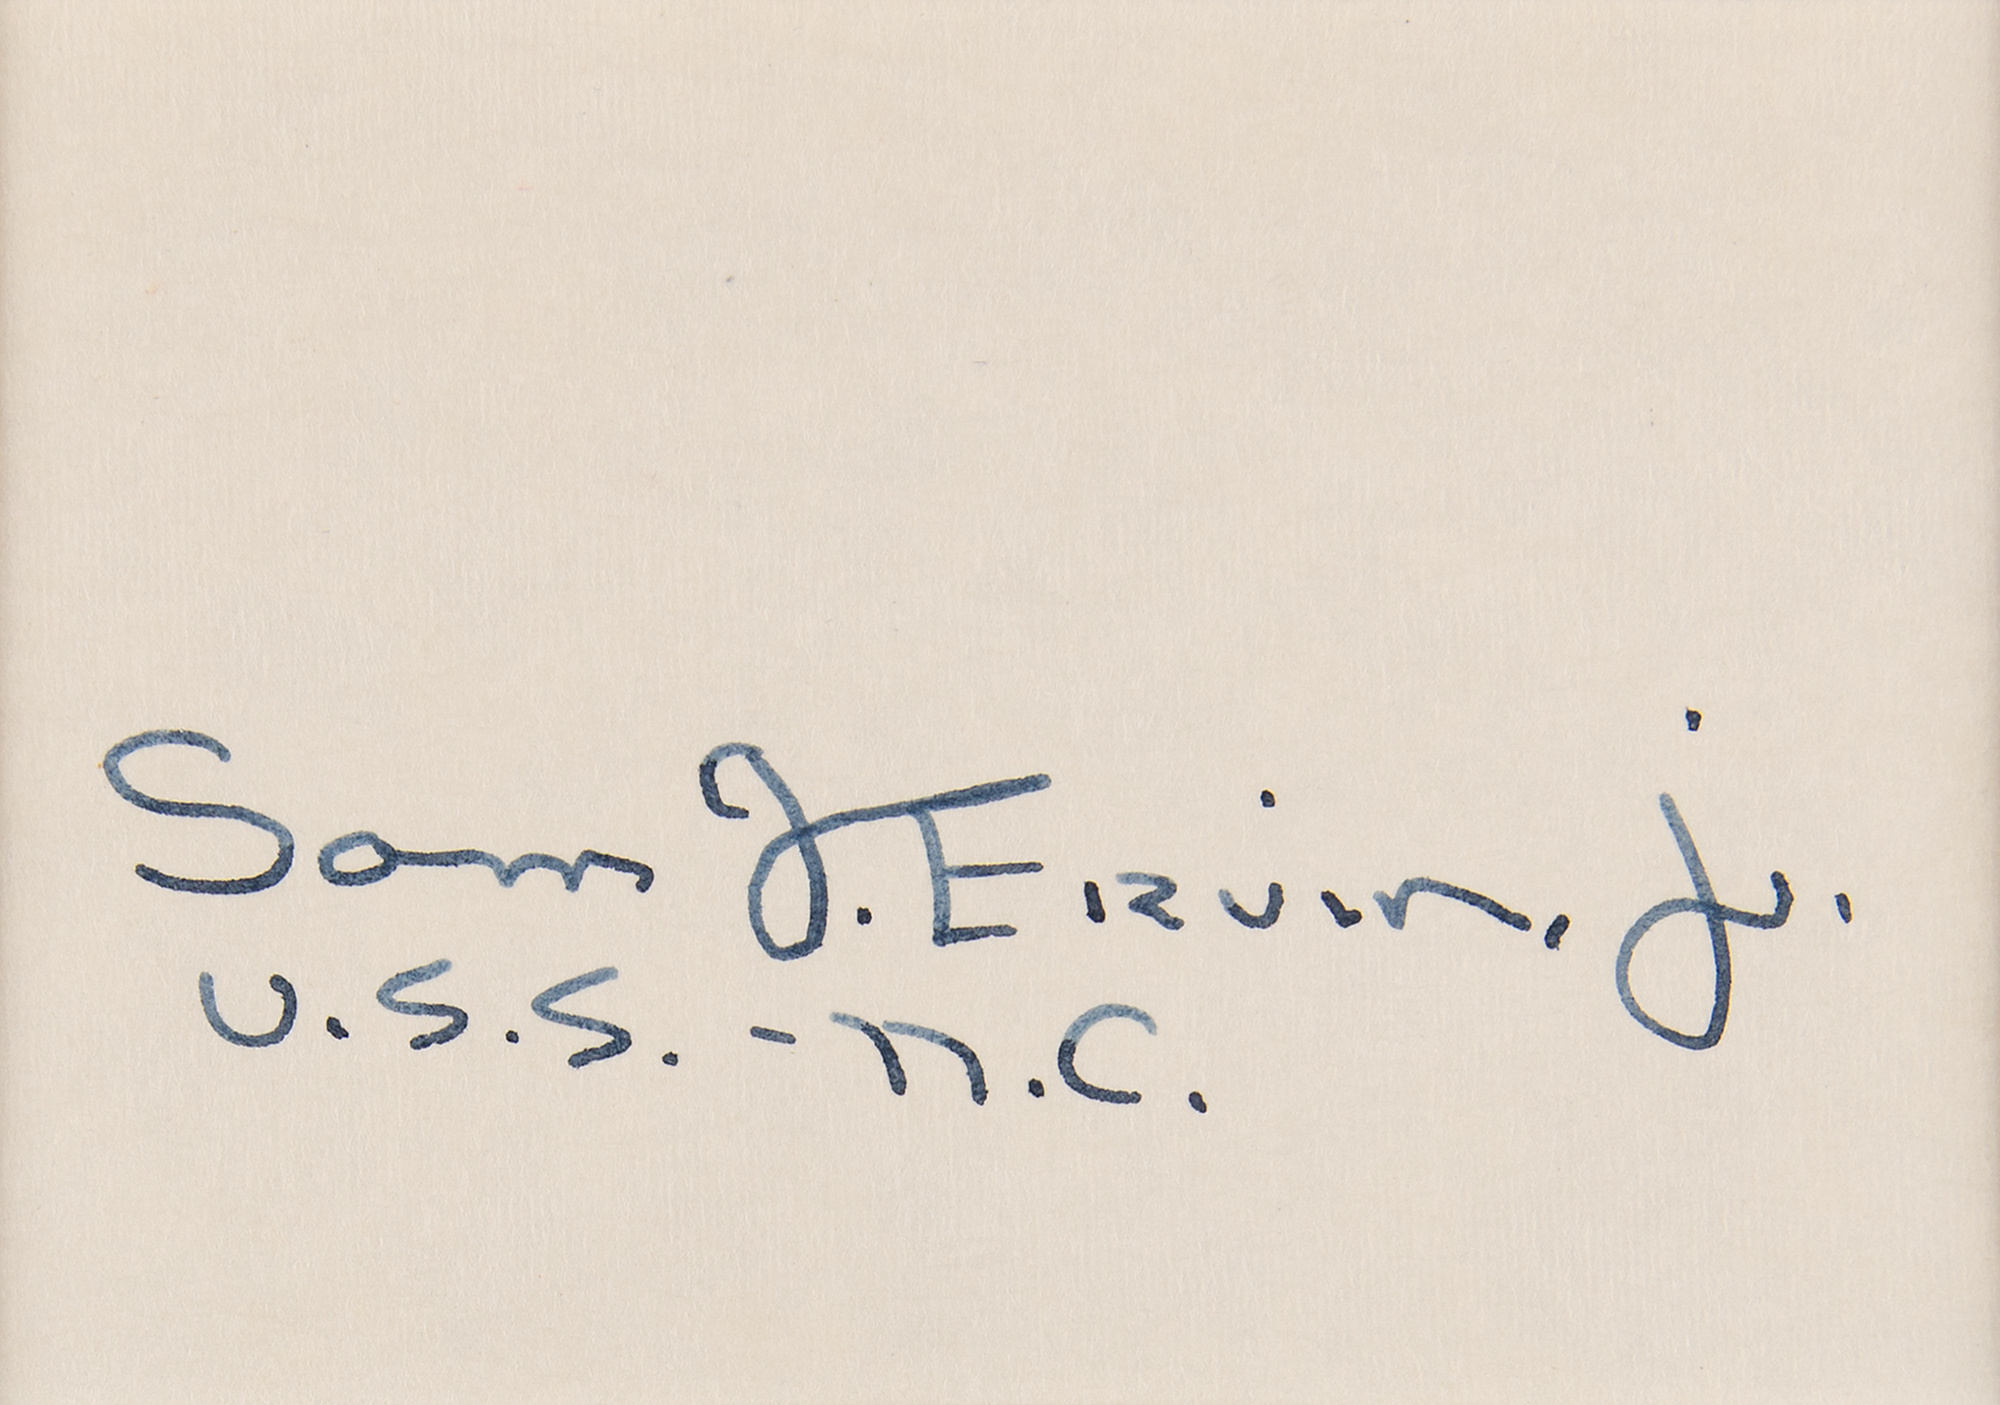 Sam J. Ervin, jr.
U.S.S. - N.C.